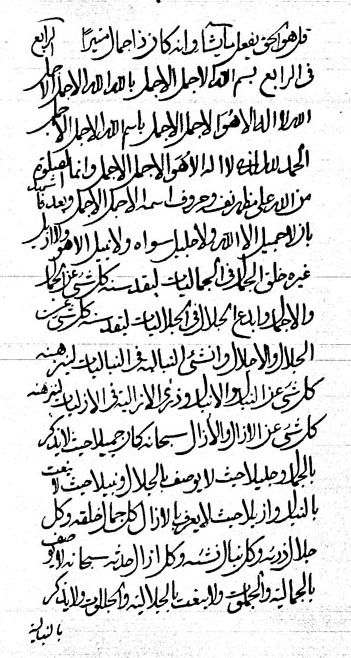 قل هو الحق يفعل ما يشاء وانه كان ذا جمال منيرا الرابع
فى الرابع بسم الله الاجمل الاجمل بالله الله الاجمل الاجمل
الله لا اله الا هو الاجمل الاجمل باسم الله الاجمل الاجمل
الحمد لله الذى لا اله الا هو الاجمل الاجمل وانما الصلوة
من الله على مظهر نفسه وحروف اسمه الاجمل الاجمل وبعد فاشهد
بان لا جميل الا الله ولا جليل سواه ولا نبيل الا هو ولا ازيل
غيره خلق الجمال فى الجماليات ليقدسنه كل شئ عن الجمال
والاجمال وابدع الجلال فى الجلاليات ليقدسنه كل شئ عن
الجلال والاجلال وانشئ النبالية فى النباليات لينزهنه
كل شئ عن النبال والانبال وذرئ الازالية فى الازاليات لينزهنه
كل شئ عن الازال والآزال سبحانه كان جميلا حيث لا يذكر
بالجمال وجليلا حيث لا يوصف بالجلال ونبيلا حيث لا ينعت
بالنبال وازيلا حيث لا يعرف بالازال كل جمال خلقه وكل
جلال ذريه وكل نبال نشئه وكل ازال حدثه سبحانه لا يوصف
بالجمالية والجملوت ولا ينعت بالجلالية والجللوت ولا يذكر
بالنبالية